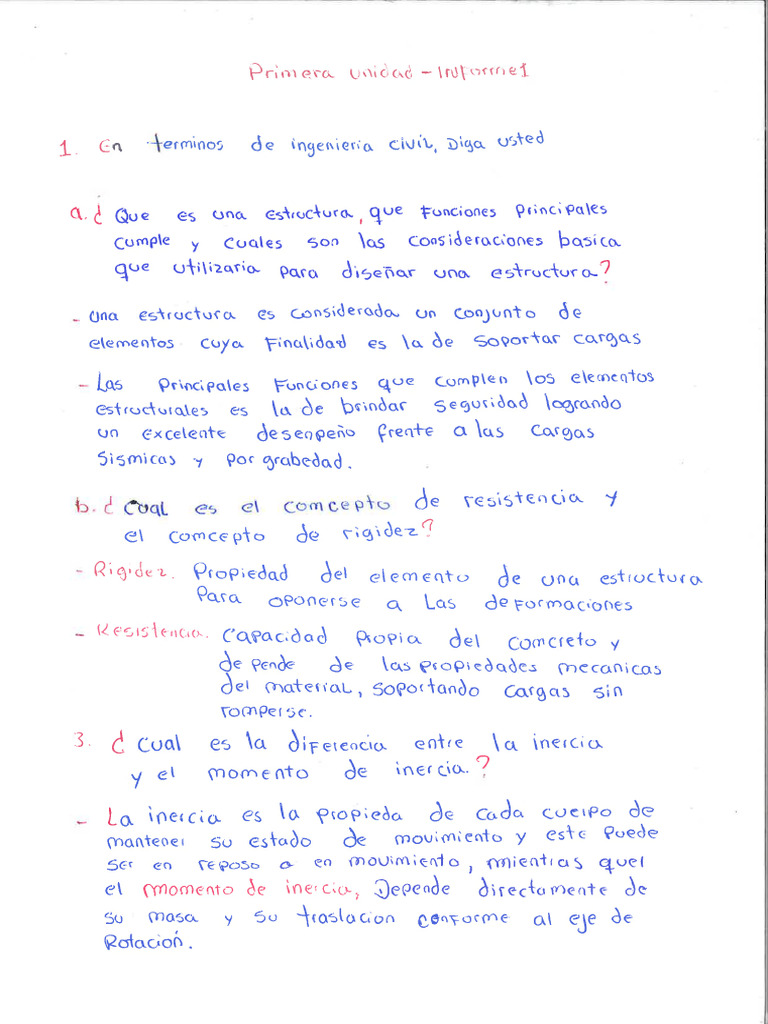 Primera unidad - Informe 1
1. En terminos de ingenieria civil, Diga usted
a. ¿ Que es una estructura, que Funciones Principales
cumple y cuales son las consideraciones basica
que utilizaria para diseñar una estructura?
- una estructura es considerada un conjunto de
elementos cuya Finalidad es la de soportar cargas
- Las Principales Funciones que cumplen los elementos
estructurales es la de brindar seguridad logrando
un excelente desenpeño frente a las cargas
sismicas y por grabedad.
b. ¿ cual es el comcepto de resistencia y
el comcepto de rigidez?
- Rigidez. Propiedad del elemento de una estructura
Para oponerse a Las deformaciones
- Resistencia. capacidad propia del comcreto y
depende de las propiedades mecanicas
del material, soportando cargas sin
romperse.
3. ¿ cual es la diferencia entre la inercia
y el momento de inercia.?
- La inercia es la propieda de cada cuerpo de
mantener su estado de movimiento y este puede
ser en reposo o en movimiento, mientras quel
el momento de inercia, Depende directamente de
su masa y su traslacion conforme al eje de
Rotación.